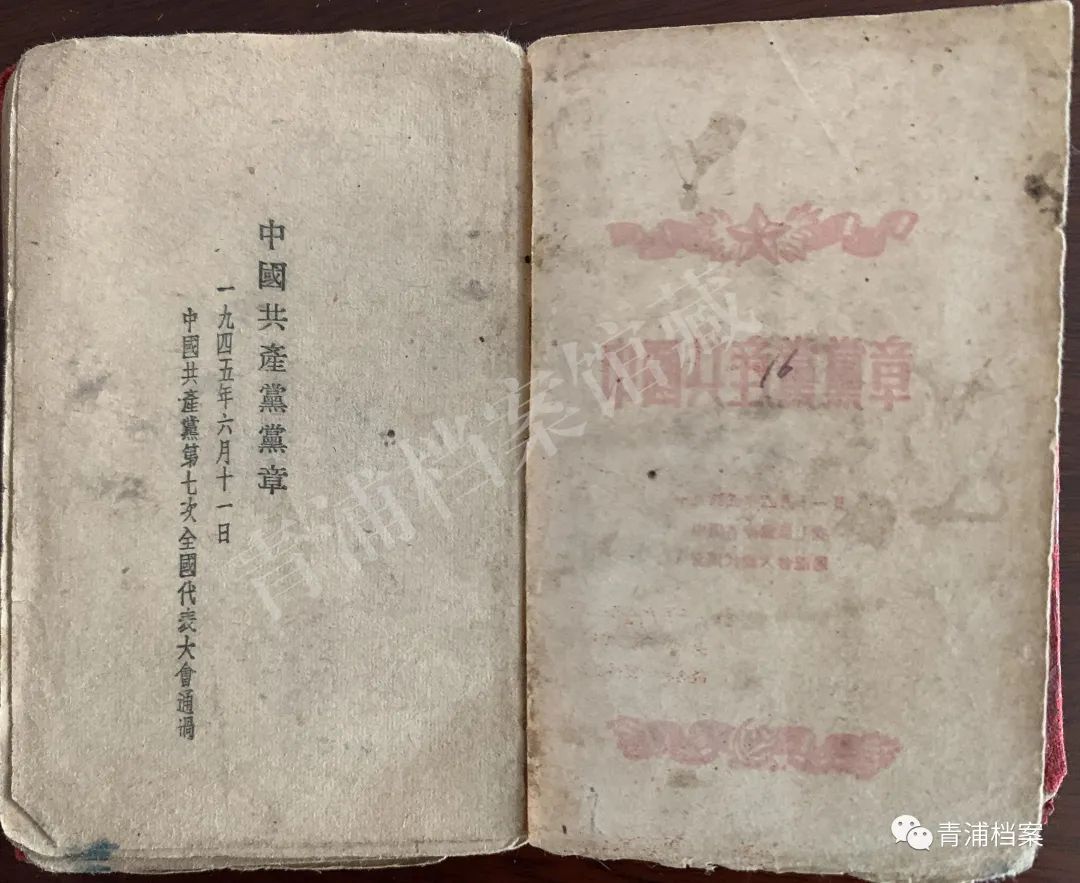 中國共產黨黨章
一九四五年六月十一日
中國共產黨第七次全國代表大會通過
中國共產黨黨章
16
青浦档案馆藏
青浦档案